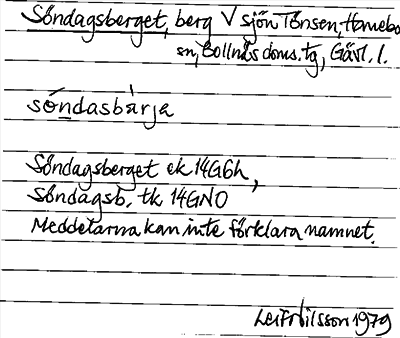 Söndagsberget, berg V sjön Tönsen, Hanebo
sn, Bollnäs doms. tg, Gävl. l.
söndasbärja
Söndagsberget ek 14G6h,
Söndagsb. tk 14GNO
Meddelarna kan inte förklara namnet.
Leif Nilsson 1979